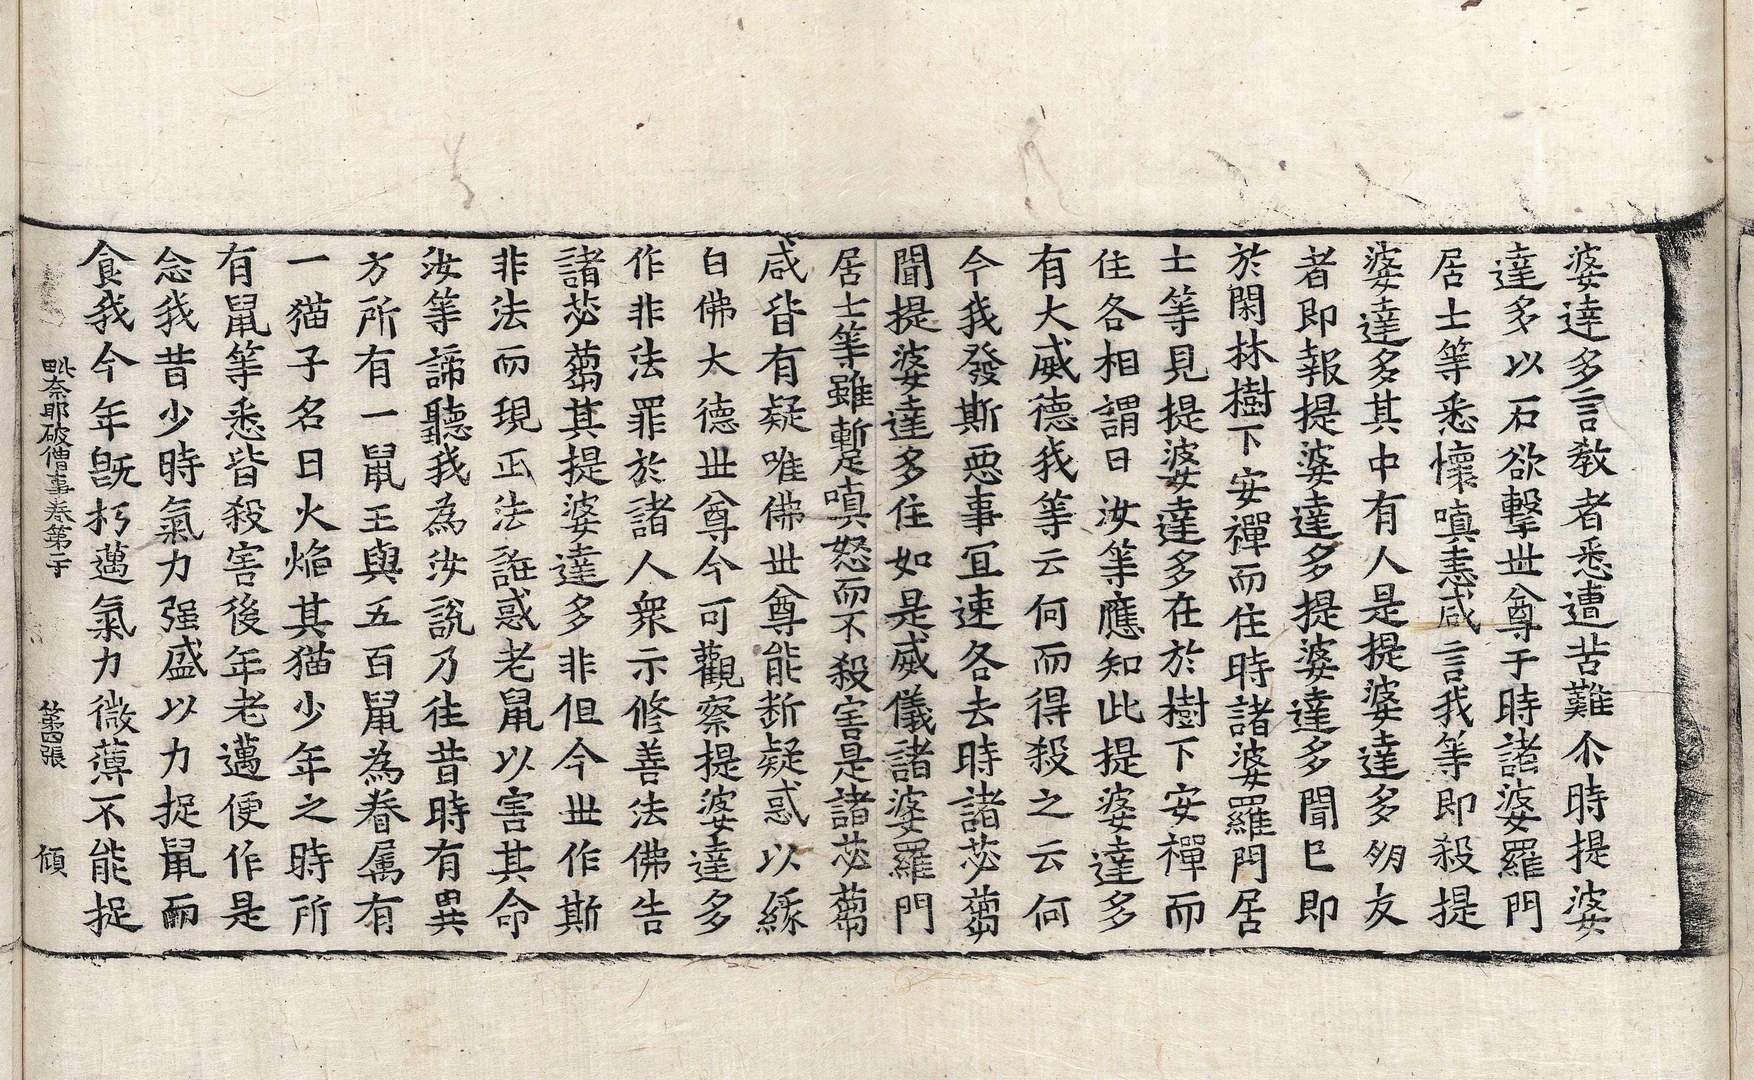 婆達多言教者悉遭苦難尒時提婆
達多以石欲擊丗尊于時諸婆羅門
居士等悉懷嗔恚咸言我等即殺提
婆達多其中有人是提婆達多朋友
者即報提婆達多提婆達多聞已即
於閑林樹下安禪而住時諸婆羅門居
士等見提婆達多在於樹下安禪而
住各相謂曰汝等應知此提婆達多
有大威德我等云何而得殺之云何
今我發斯惡事冝速各去時諸苾蒭
聞提婆達多住如是威儀諸婆羅門
居士等雖暫㝎嗔怒而不殺害是諸苾蒭
咸皆有疑唯佛丗尊能断疑惑以緣
白佛大德丗尊今可觀察提婆達多
作非法罪於諸人衆示修善法佛告
諸苾蒭其提婆達多非但今丗作斯
非法而現正法誑惑老鼠以害其命
汝等諦聽我為汝說乃往昔時有異
方所有一鼠王與五百鼠為眷属有
一猫子名曰火焰其猫少年之時所
有鼠等悉皆殺害後年老邁便作是
念我昔少時氣力强盛以力捉鼠而
食我今年旣朽邁氣力微薄不能捉
毗奈耶破僧事卷第二十 第四張 頎